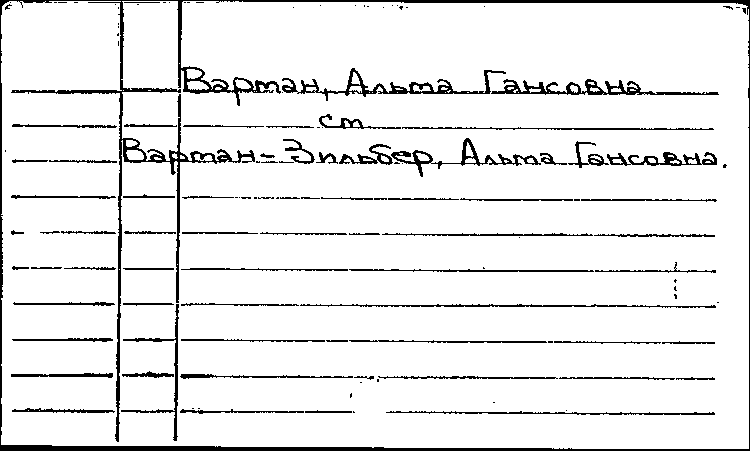 Вартман, Альма Гансовна.
см
Вартман-Зильбер, Альма Гансовна.